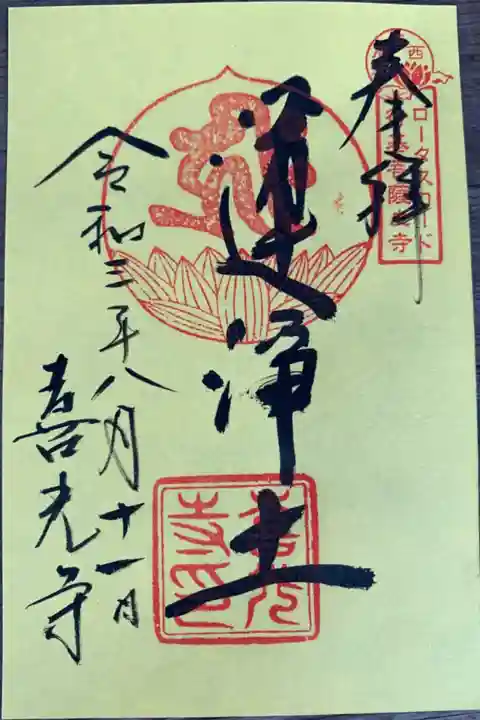 奉拝
西
ロータスロード
蓮浄土
令和三年八月十一日
喜光寺